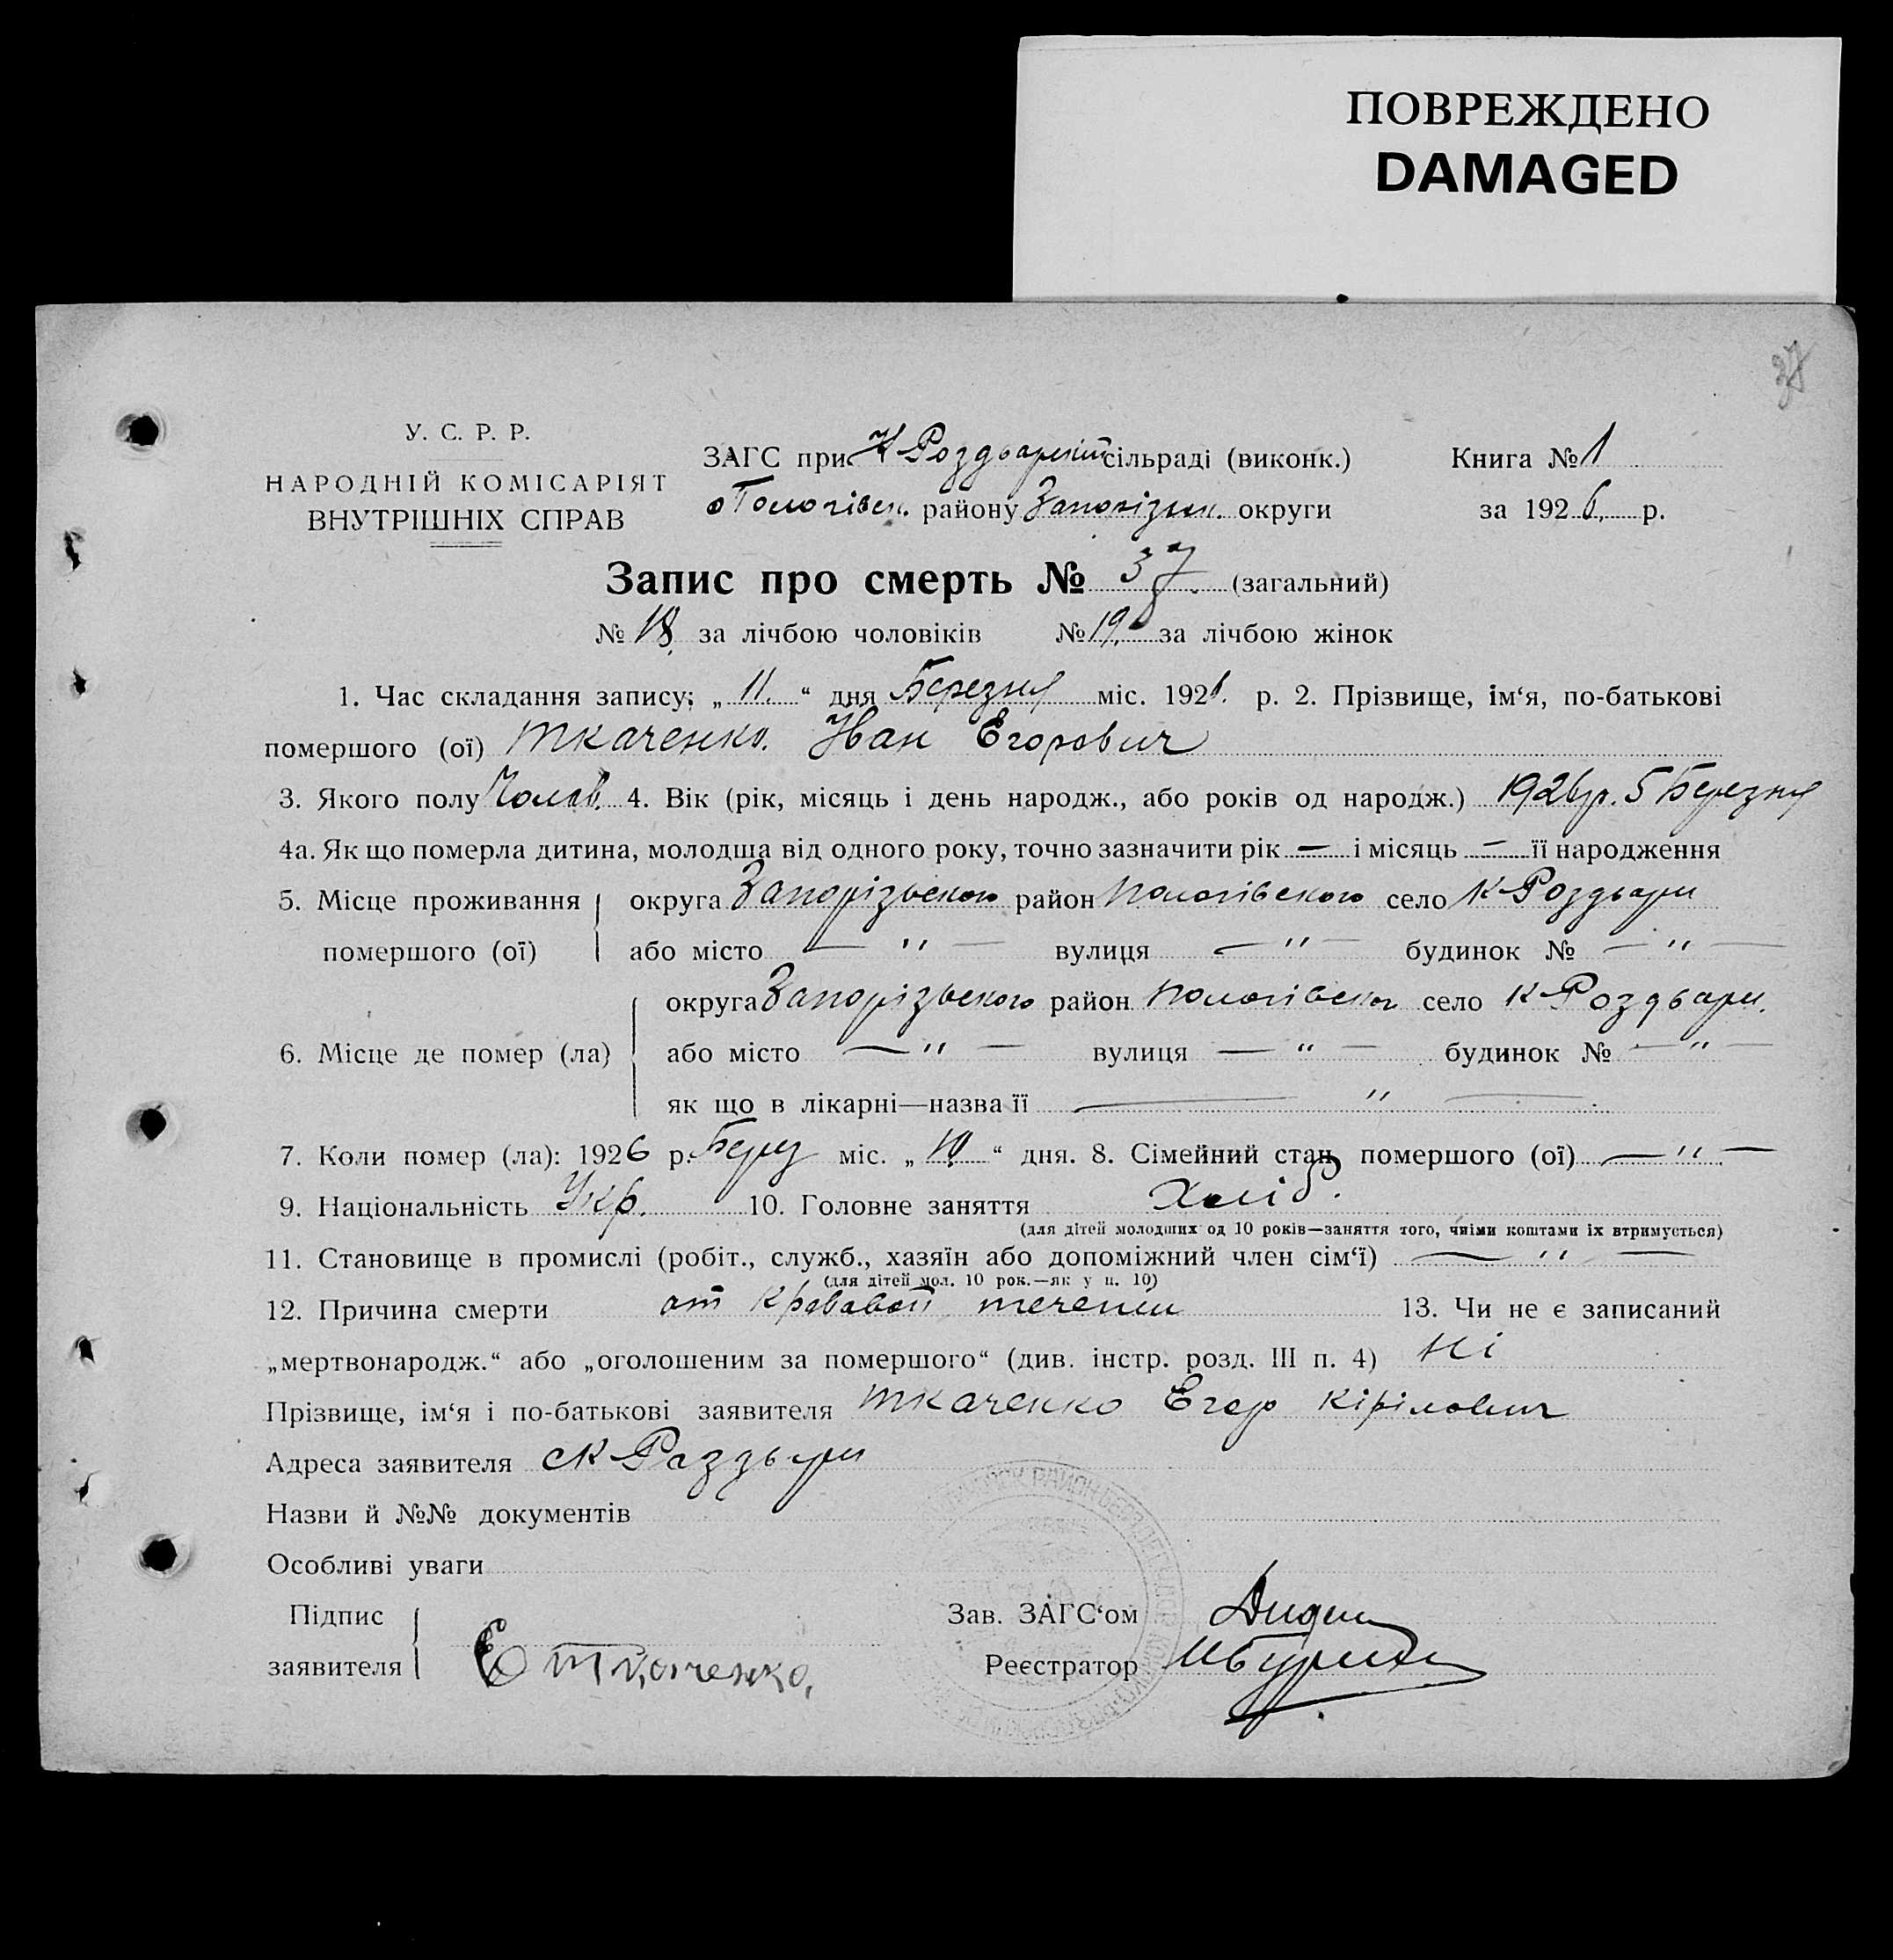 ПОВРЕЖДЕНО
DAMAGED
37
У. С. Р. Р.
НАРОДНІЙ КОМІСАРІЯТ
ВНУТРІШНІХ СПРАВ
ЗАГС при К Роздорській сільраді (виконк.) Книга № 1
Пологівськ. району Запорізьк. округи за 1926. р.
Запис про смерть № 37. (загальний)
№ 18. за лічбою чоловіків № 19. за лічбою жінок
1. Час складання запису: „ 11. “ дня Березня міс. 1926. р. 2. Прізвище, ім‘я, по-батькові
помершого (ої) Ткаченко. Іван Егорович
3. Якого полу Чолов. 4. Вік (рік, місяць і день народж., або років од народж.) 1926 р. 5 Березня
4а. Як що померла дитина, молодша від одного року, точно зазначити рік — і місяць — її народження
5. Місце проживання округа Запорізьского район Пологівского село К-Роздори
помершого (ої) або місто — " — вулиця — " — будинок № — " —
округа Запорізьского район Пологівског село К-Роздори.
6. Місце де помер (ла) або місто — " — вулиця — " — будинок № — " —
як що в лікарні—назва її — " —
7. Коли помер (ла): 1926 р. Берез міс. „ 10. “ дня. 8. Сімейний стан помершого (ої) — " —
9. Національність Укр. 10. Головне заняття Хліб.
(для дітей молодших од 10 років—заняття того, чиїми коштами їх втримується)
11. Становище в промислі (робіт., служб., хазяїн або допоміжний член сім‘ї) — " —
(для дітей мол. 10 рок.—як у п. 10)
12. Причина смерти от кровавой течении 13. Чи не є записаний
„мертвонародж.“ або „оголошеним за помершого“ (див. інстр. розд. III п. 4) Ні
Прізвище, ім‘я і по-батькові заявителя Ткаченко Егор Кірілович
Адреса заявителя с К-Раздори
Назви й №№ документів
Особливі уваги
Підпис Зав. ЗАГС‘ом
заявителя Е Ткаченко, Реєстратор